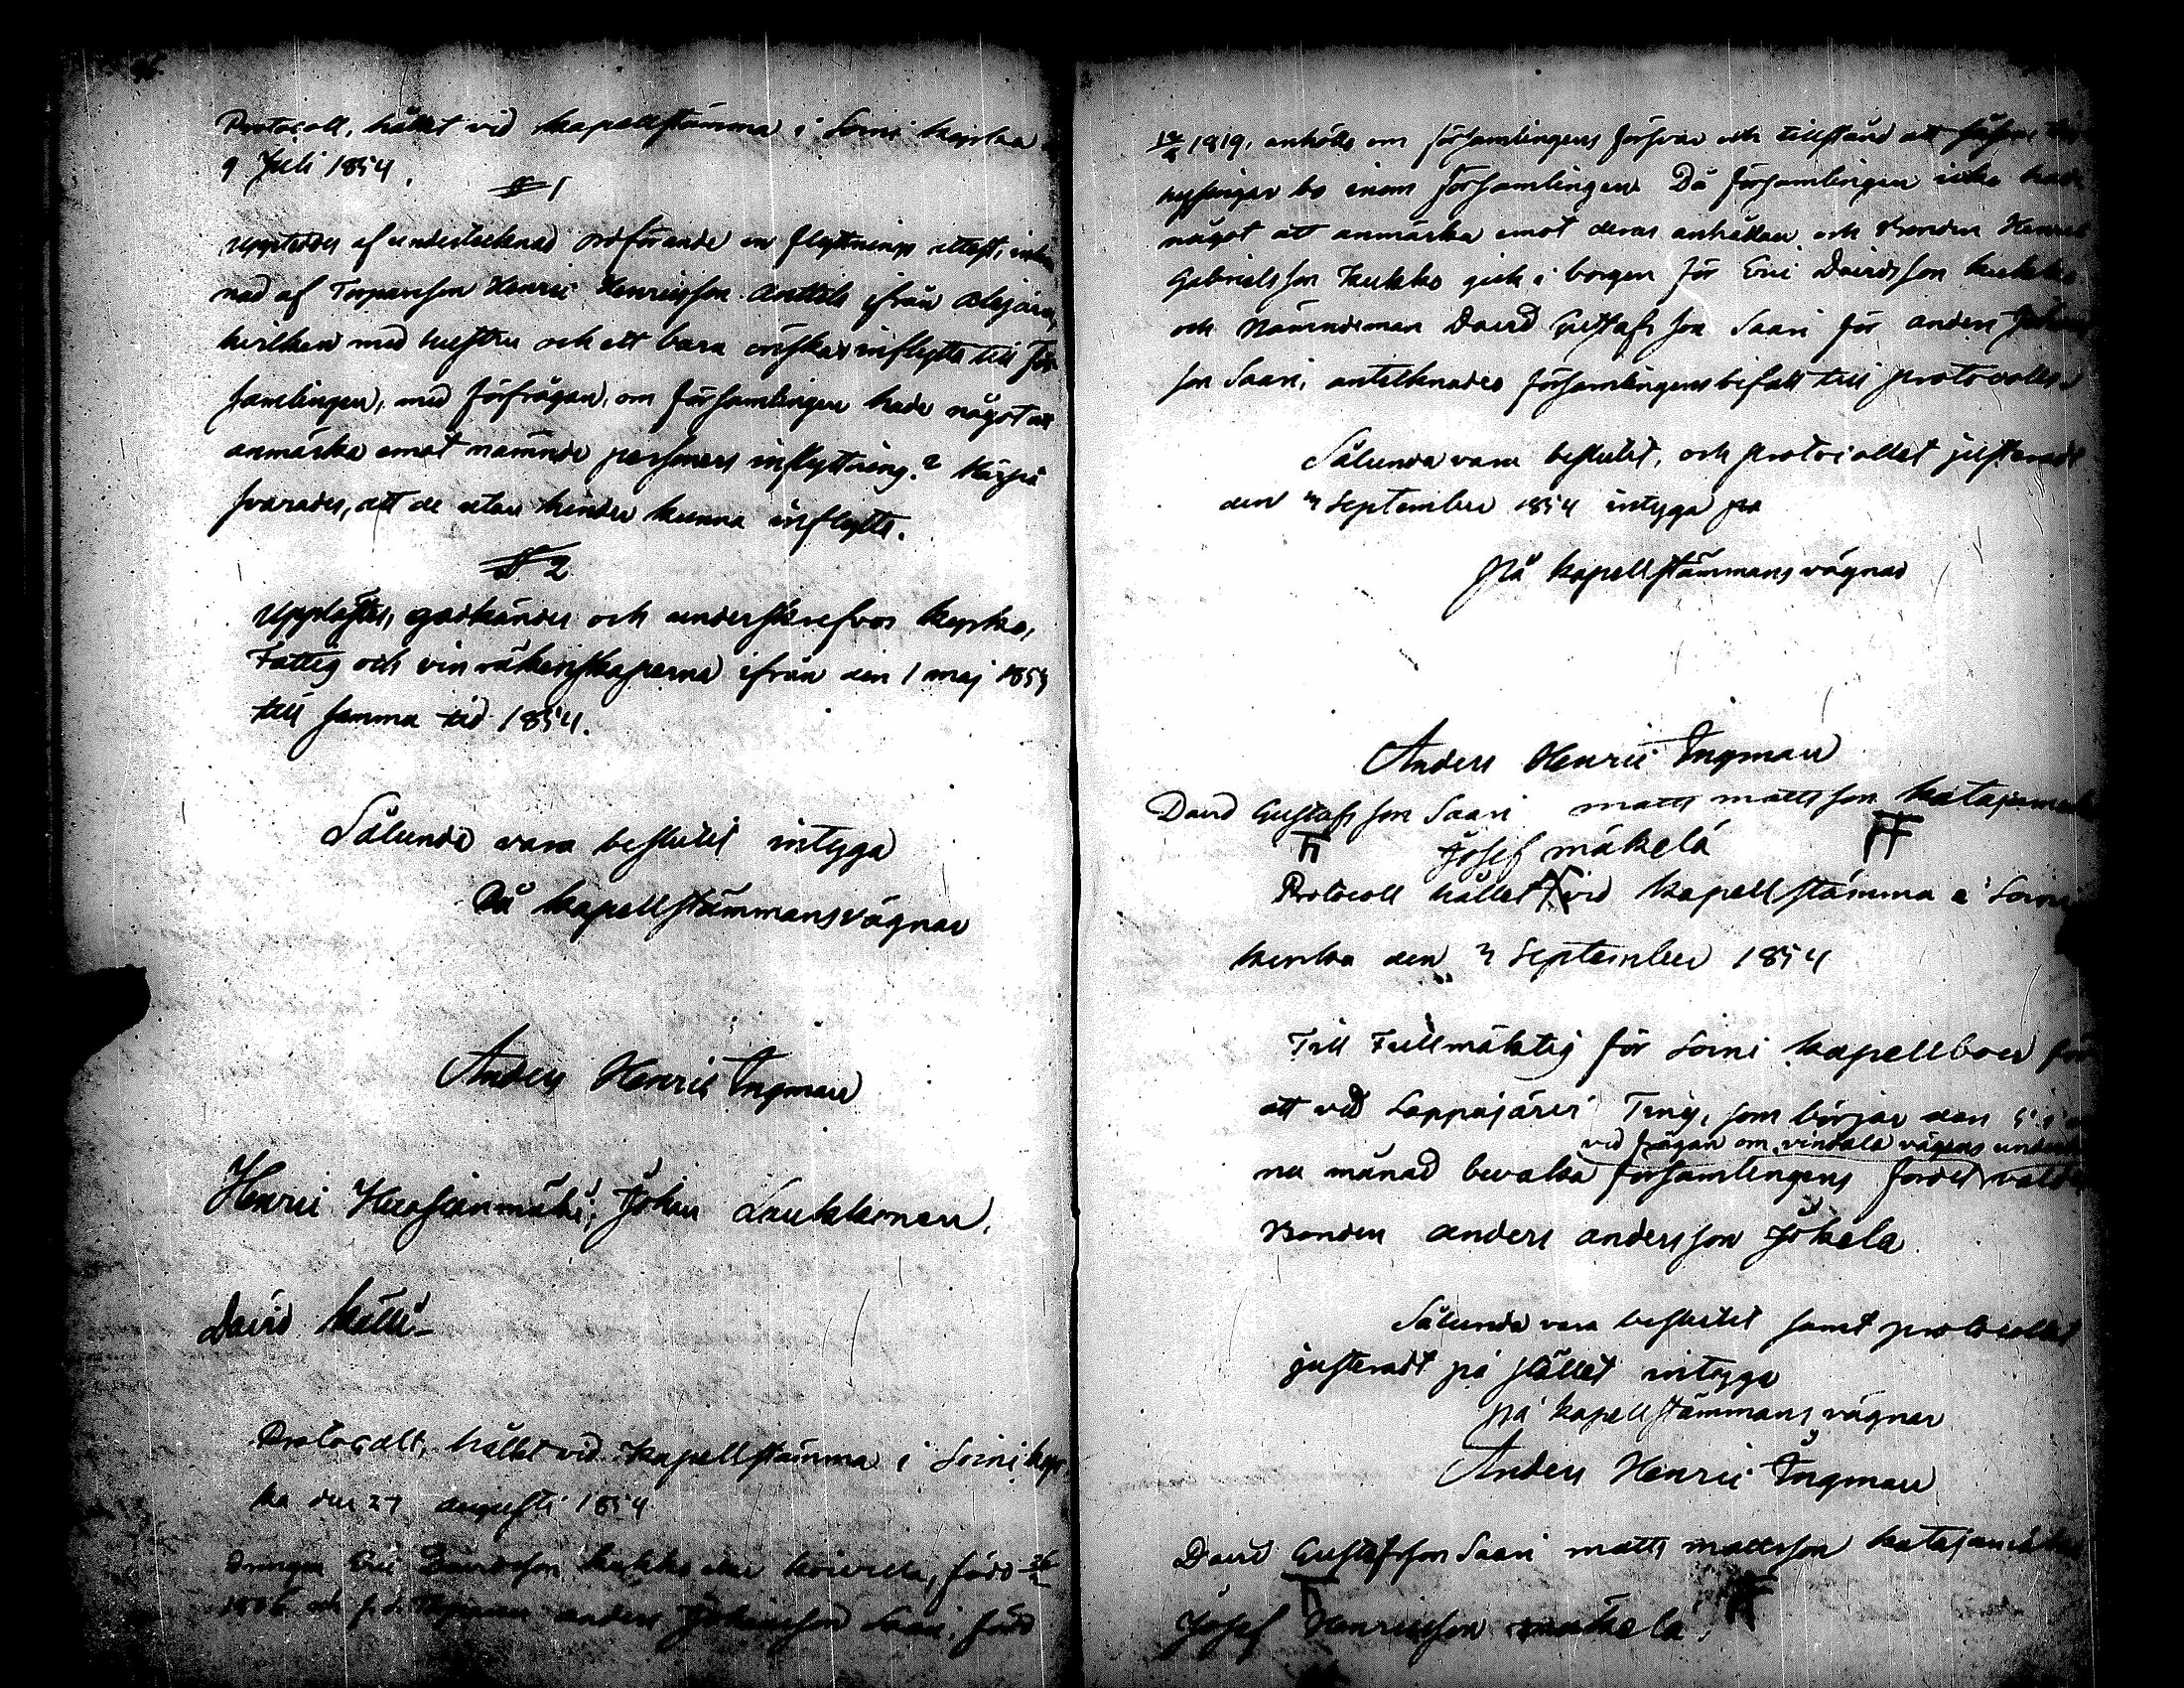 Protocoll, hållet vid kapellstämma i Soini kyrka
9 Juli 1854.
§ 1
Uppteddes af undertecknad ordförande en flyttnings attest, inläm
nad af Torpareson Henric Henricsson Anttila ifrån Alajärvi,
hvilken med hustru och ett barn önskar inflytta till För
samlingen, med förfrågan, om församlingen hade något att
anmärka emot nämnde personers inflyttning? Härpå
svarades, att de utan hinder kunna inflytta.
§ 2
Upplästes, godkändes och underskrefvos kyrko,
Fattig och vin räkenskaperna ifrån den 1 maj 1853
till samma tid 1854.
Sålunda vara beslutet intyga
På kapellstämmans vägnar
Anders Henric Ingman
Henric Kuosianmäki; Johan Laukkonen.
David Källi
Protocoll, hållet vid kapellstämma i Soini kyr
ka den 27 augusti 1854
Drängen Eric Davidsson Kukko eller Koivula, född 26/2
1806 och f. d. Torparen anders Johansson Saari, född
1819, anhöllo om församlingens försvar och tillstånd att såsom
hysingar bo inom församlingen. Då församlingen icke hade
något att anmärka emot deras anhållan och Bonden Henric
Gabrielsson Kukko gick i borgen för Eric Davidsson Kukko
och Nämndeman David Gustafsson Saari för anders Johans
son Saari, antecknades församlingens bifall till protocollet.
Sålunda vara beslutet, och protocollet justeradt
den 3 September 1854 intyga
på kapellstämmans vägnar
Anders Henric Ingman
David Gustafsson Saari matts mattsson Katajamäki
Josef mäkelä
Protocoll hållet vid kapellstämma i Soini
kyrka den 3 September 1854
Till Fullmäktig för Soini kapellboer för
att vid Lappajärvi Ting, som börjar den
vid frågan om vindala vägens
na månad bevaka församlingens fördel valdes
Bonden anders andersson Jokela
Sålunda vara beslutet samt protocollet
justeradt på stället intyga
på kapellstämmans vägnar
Anders Henric Ingman
David Gustafsson Saari matts mattsson Katajamäki
Josef Henricsson mäkelä.